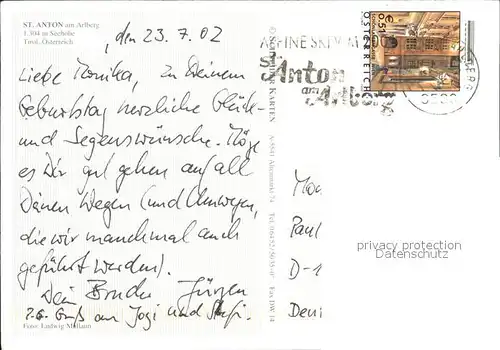 ST. ANTON am Arlberg
1.304 m Seehöhe
Tirol, Österreich
, den 23.7.02
Liebe Monika, zu Deinem
Geburtstag herzliche Glück-
und Segenswünsche. Möge
es Dir gut gehen auf all
Deinen Wegen (und Umwegen,
die wir manchmal auch
geführt werden).
Dein Bruder Jürgen
P.S. Gruß an Jogi und
Foto: Ludwig Mallaun
KARTEN A-5541 Altenmarkt 74 Tel. 06452/5035-0 Fax DW 14
€ 0,51
ÖSTERREICH
ALPINE SKI WM
St. Anton
am Arlberg
Paul
D-
privacy protection
Datenschutz